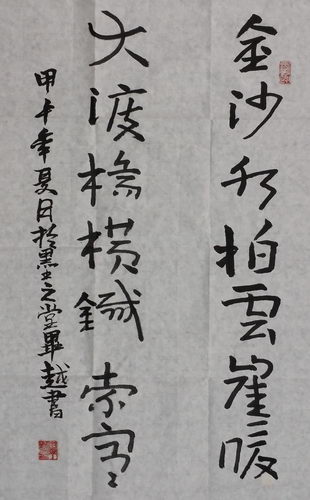 金沙水拍雲崖暖
大渡橋橫鐵索寒
甲午年夏月於黑土之堂畢越書